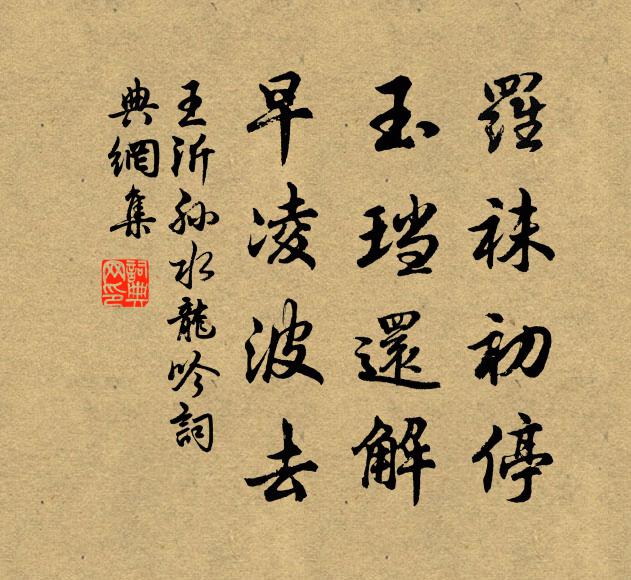 羅袜初停
玉璫還解
早凌波去
王沂孫水龍吟詞
典網集
詞典网印